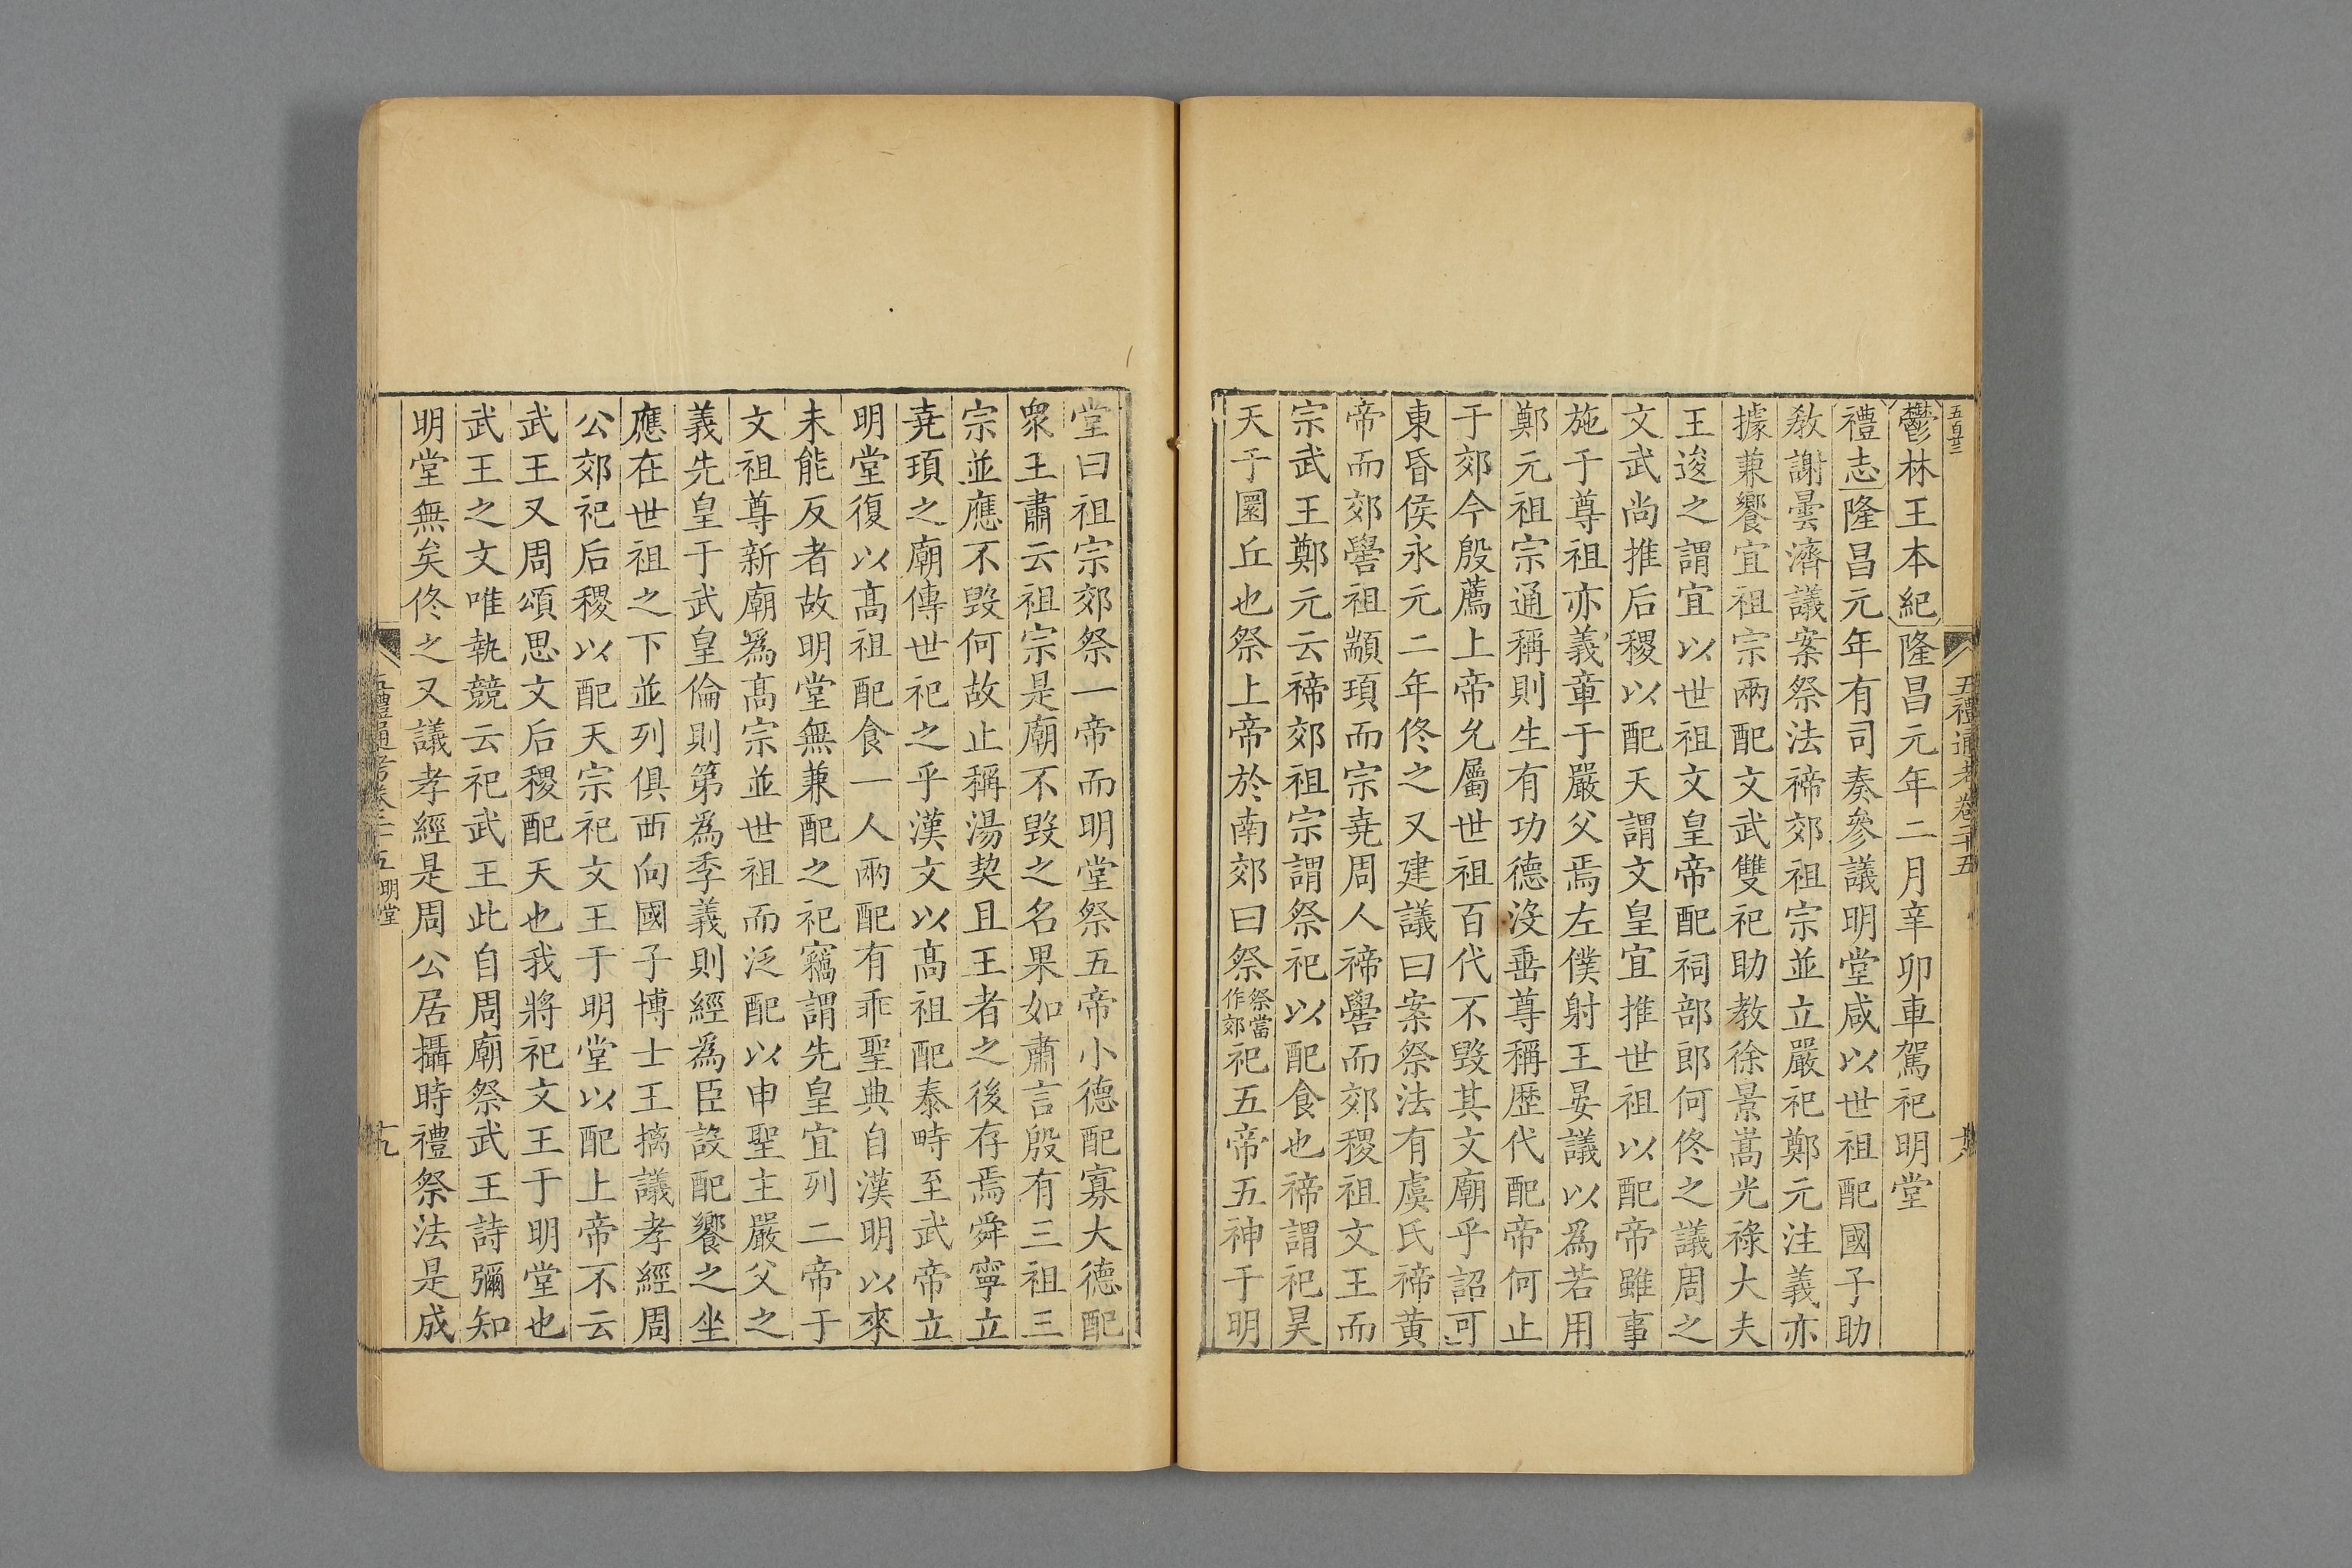 五百廿三
五禮通考卷二十五
鬱林王本紀隆昌元年二月辛卯車駕祀明堂
禮志隆昌元年有司奏參議明堂咸以世祖配國子助
敎謝曇濟議案祭法禘郊祖宗並立嚴祀鄭元注義亦
據兼饗宜祖宗兩配文武雙祀助教徐景嵩光祿大夫
王逡之謂宜以世祖文皇帝配祠部郎何佟之議周之
文武尚推后稷以配天謂文皇宜推世祖以配帝雖事
施于尊祖亦義章于嚴父焉左僕射王晏議以為若用
鄭元祖宗通稱則生有功德沒垂尊稱歷代配帝何止
于郊今殷薦上帝允屬世祖百代不毀其文廟乎詔可
東昏侯永元二年佟之又建議曰案祭法有虞氏禘黃
帝而郊嚳祖顓頊而宗堯周人禘嚳而郊稷祖文王而
宗武王鄭元云禘郊祖宗謂祭祀以配食也禘謂祀昊
天于圜丘也祭上帝於南郊曰祭祭當作郊祀五帝五神于明
堂曰祖宗郊祭一帝而明堂祭五帝小德配寡大德配
衆王肅云祖宗是廟不毀之名果如肅言殷有三祖三
宗並應不毀何故止稱湯契且王者之後存焉舜寧立
堯頊之廟傳世祀之乎漢文以高祖配泰畤至武帝立
明堂復以高祖配食一人兩配有乖聖典自漢明以來
未能反者故明堂無兼配之祀竊謂先皇宜列二帝于
文祖尊新廟為高宗並世祖而泛配以申聖主嚴父之
義先皇于武皇倫則第為季義則經為臣設配饗之坐
應在世祖之下並列俱西向國子博士王摛議孝經周
公郊祀后稷以配天宗祀文王于明堂以配上帝不云
武王又周頌思文后稷配天也我將祀文王于明堂也
武王之文唯執競云祀武王此自周廟祭武王詩彌知
明堂無矣佟之又議孝經是周公居攝時禮祭法是成
五禮通考卷二十五 明堂